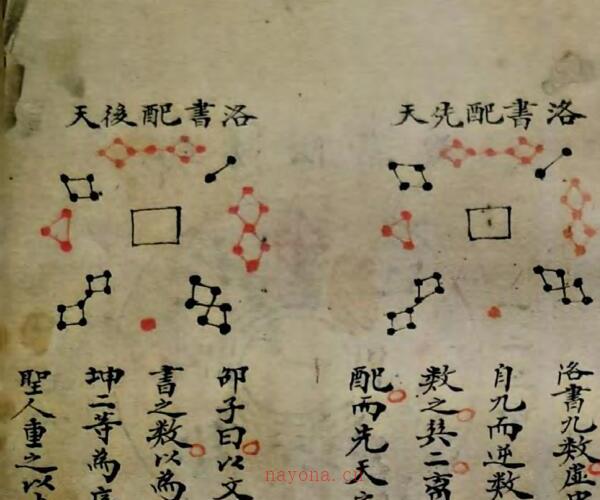 洛書配先天
洛書配後天
洛書九數
自九而逆數
數之其二离
配而先天
邵子曰以文
書之數以為
坤二等為
聖人重之以
nayona.cn